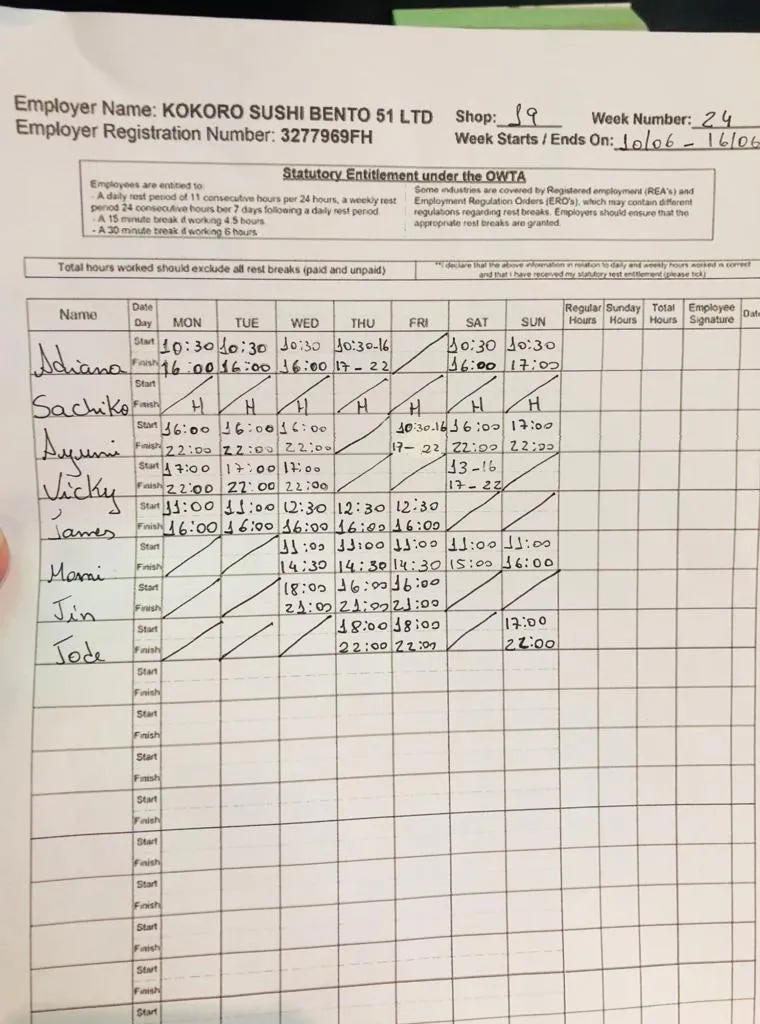 Employer Name: KOKORO SUSHI BENTO 51 LTD Shop: 19 Week Number: 24
Employer Registration Number: 3277969FH Week Starts / Ends On: 10/06 - 16/06
Statutory Entitlement under the OWTA
Employees are entitled to:
- A daily rest period of 11 consecutive hours per 24 hours, a weekly rest
period 24 consecutive hours ber 7 days following a daily rest period
- A 15 minute break if working 4.5 hours
- A 30 minute break if working 6 hours
Some industries are covered by Registered employment (REA's) and
Employment Regulation Orders (ERO's), which may contain different
regulations regarding rest breaks. Employers should ensure that the
appropriate rest breaks are granted.
Total hours worked should exclude all rest breaks (paid and unpaid)
**I declare that the above information in relation to daily and weekly hours worked is correct
and that I have received my statutory rest entitlement (please tick)
Name Date Day MON TUE WED THU FRI SAT SUN Regular Hours Sunday Hours Total Hours Employee Signature Date
Adriana Start 10:30 10:30 10:30 10:30-16 10:30 10:30
Finish 16:00 16:00 16:00 17-22 16:00 17:00
Sachiko Start
Finish H H H H H H H
Ayumi Start 16:00 16:00 16:00 10:30-16 16:00 17:00
Finish 22:00 22:00 22:00 17-22 22:00 22:00
Vicky Start 17:00 17:00 17:00 13-16
Finish 22:00 22:00 22:00 17-22
James Start 11:00 11:00 12:30 12:30 12:30
Finish 16:00 16:00 16:00 16:00 16:00
Momi Start 11:00 11:00 11:00 11:00 11:00
Finish 14:30 14:30 14:30 15:00 16:00
Jin Start 18:00 16:00 16:00
Finish 21:00 21:00 21:00
Jode Start 18:00 18:00 17:00
Finish 22:00 22:00 22:00
Start
Finish
Start
Finish
Start
Finish
Start
Finish
Start
Finish
Start
Finish
Start
Finish
Start
Finish
Start